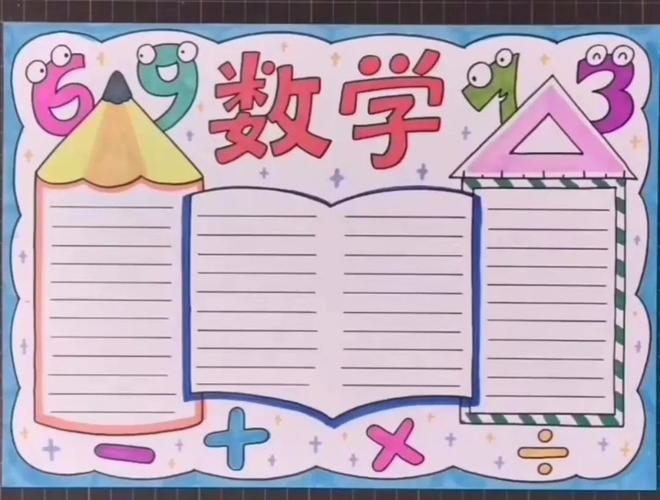 69 数学 13
- + × ÷